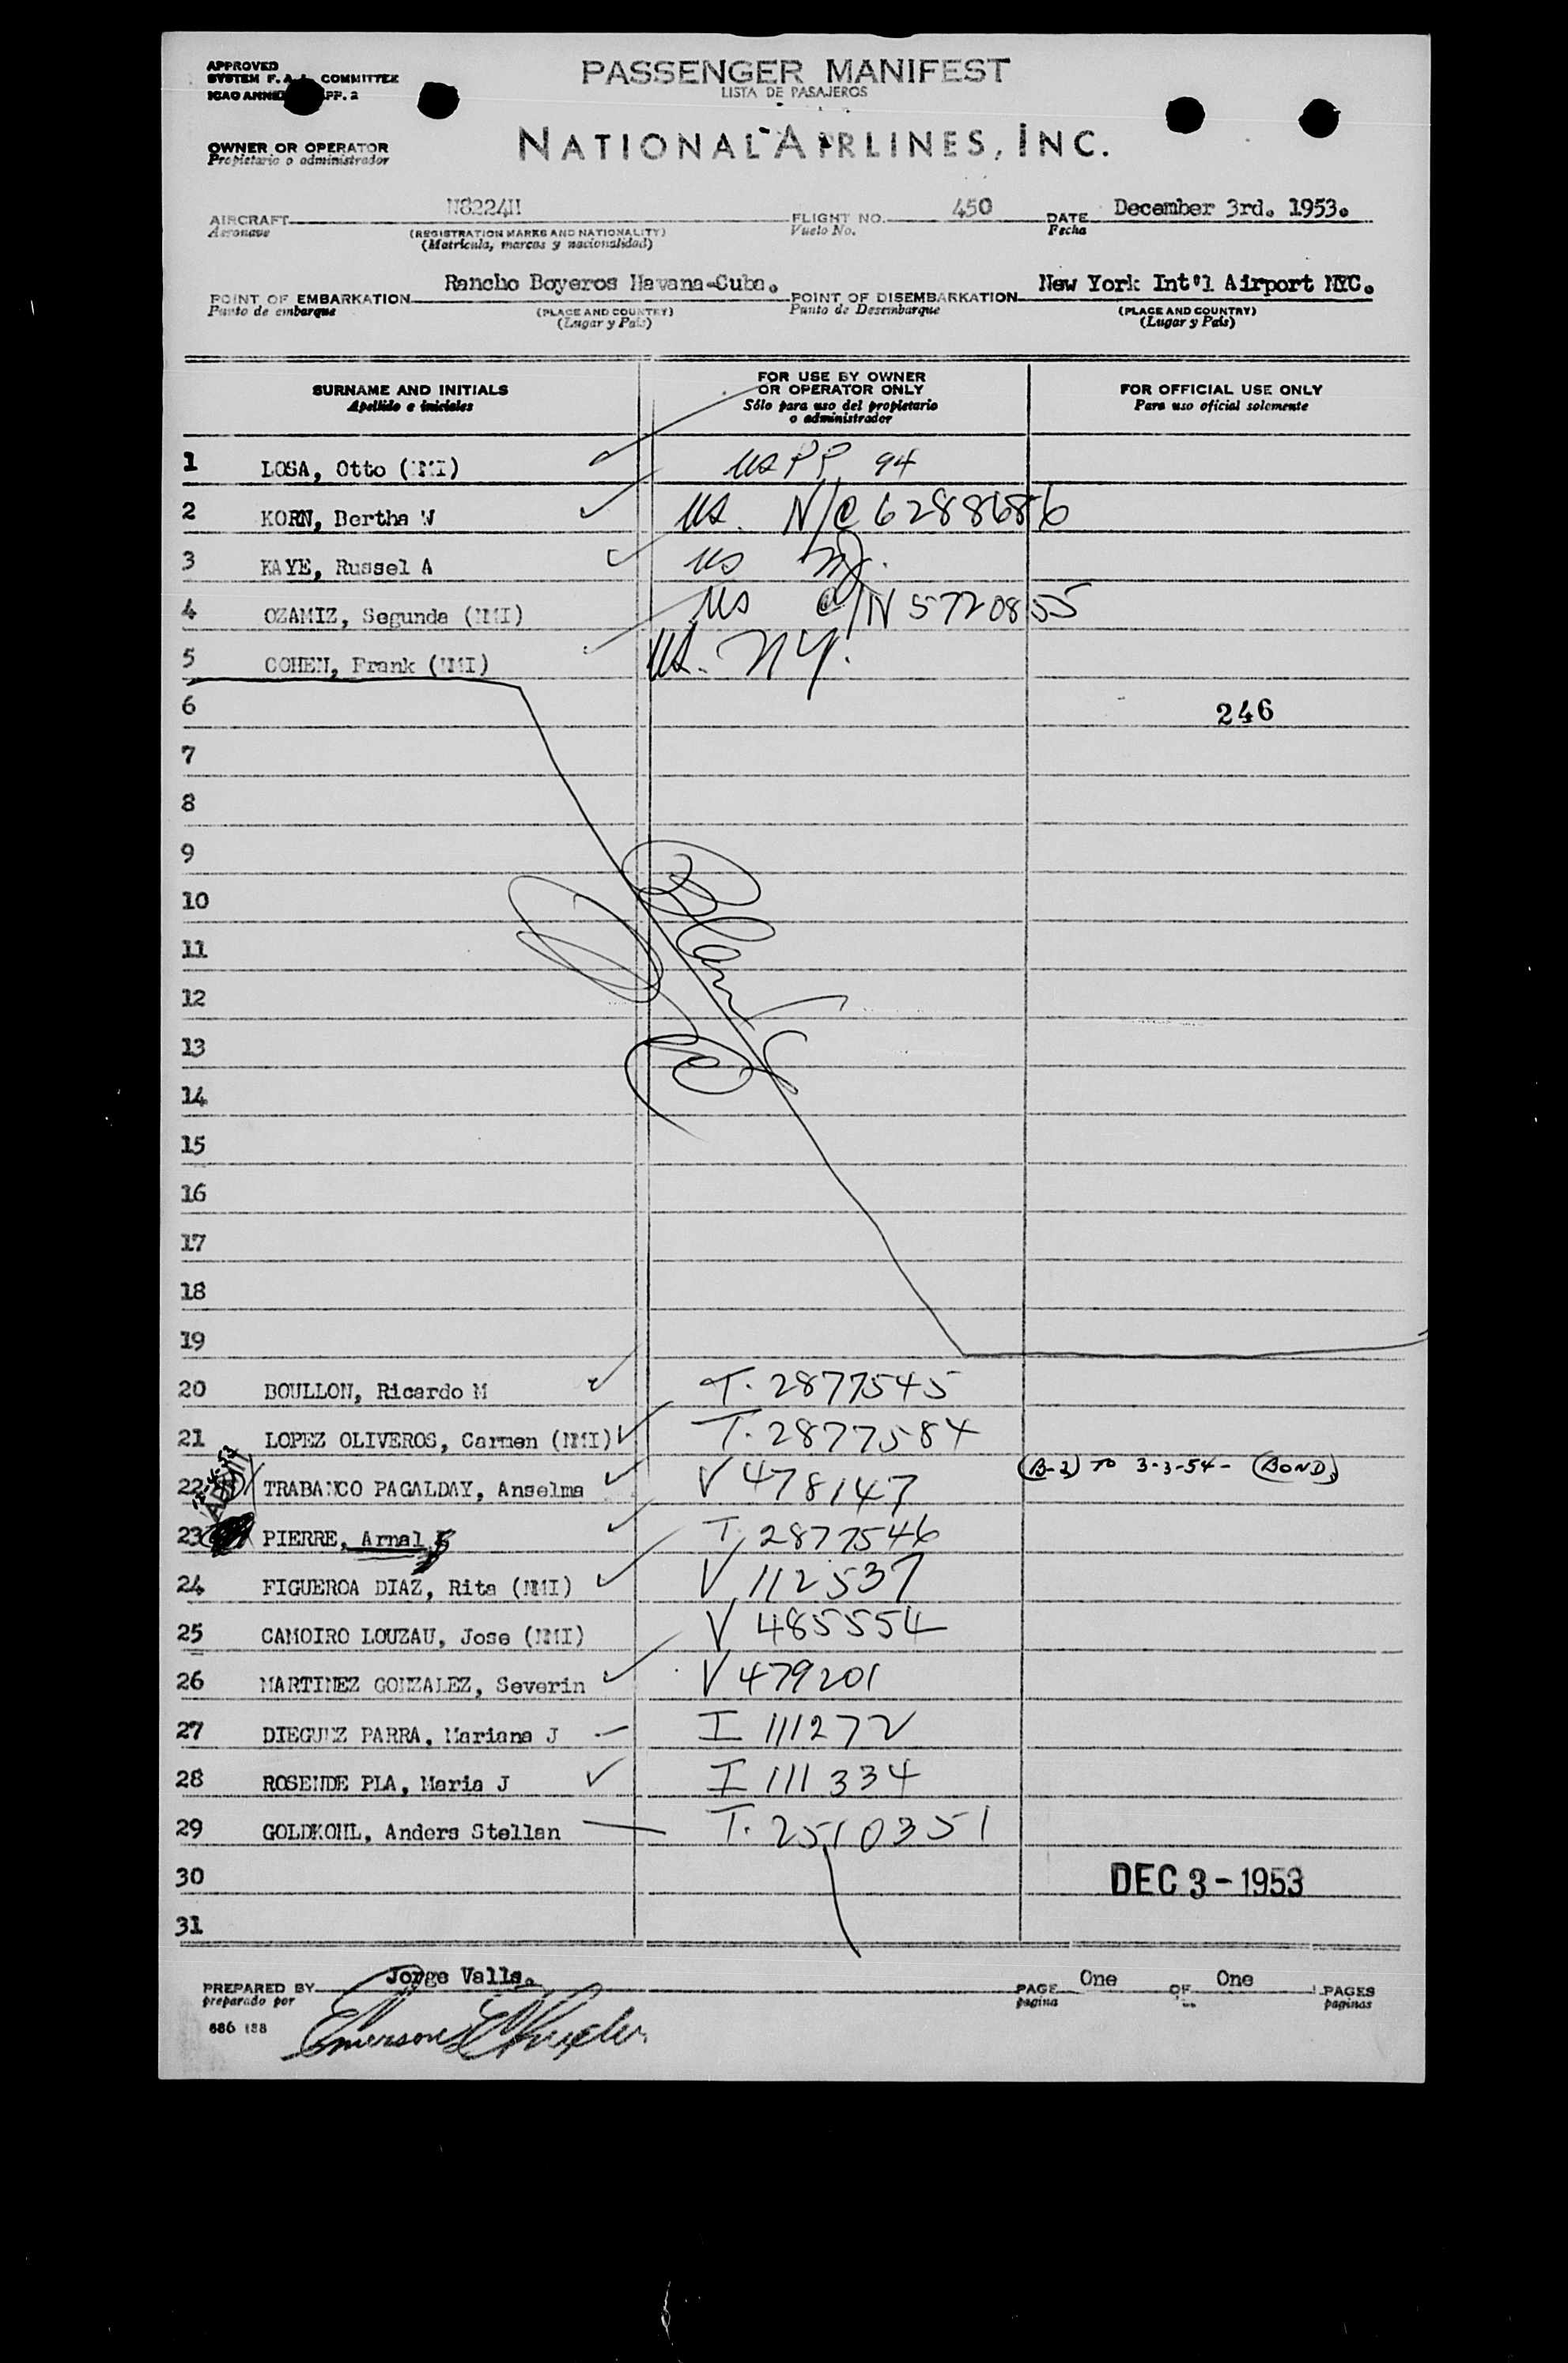 APPROVED
SYSTEM F. A. L. COMMITTEE
ICAO ANNEX PP. 2
PASSENGER MANIFEST
LISTA DE PASAJEROS
OWNER OR OPERATOR
Propietario o administrador
NATIONAL AIRLINES, INC.
AIRCRAFT N8224H FLIGHT NO. 450 DATE December 3rd. 1953.
Aeronave (REGISTRATION MARKS AND NATIONALITY) Vuelo No. Fecha
(Matrícula, marcas y nacionalidad)
POINT OF EMBARKATION Rancho Boyeros Havana-Cuba. POINT OF DISEMBARKATION New York Int'l Airport NYC.
Punto de embarque (PLACE AND COUNTRY) Punto de Desembarque (PLACE AND COUNTRY)
(Lugar y País) (Lugar y País)
SURNAME AND INITIALS FOR USE BY OWNER OR OPERATOR ONLY FOR OFFICIAL USE ONLY
Apellido e iniciales Sólo para uso del propietario o administrador Para uso oficial solemente
1 LOSA, Otto (NMI) US PP 94
2 KORN, Bertha W US. N/C 6288686
3 KAYE, Russel A US NJ.
4 OZAMIZ, Segunda (NMI) US C/N 5720855
5 COHEN, Frank (NMI) US. NY.
6 246
7
8
9
10
11
12
13
14
15
16
17
18
19
20 BOULLON, Ricardo M T. 2877545
21 LOPEZ OLIVEROS, Carmen (NMI) T. 2877584
22 TRABANCO PAGALDAY, Anselma V 478147 (B-2) TO 3-3-54- (BOND)
23 PIERRE, Arnal T. 2877546
24 FIGUEROA DIAZ, Rita (NMI) V 112537
25 CAMOIRO LOUZAU, Jose (NMI) V 485554
26 MARTINEZ GONZALEZ, Severin V 479201
27 DIEGUEZ PARRA, Mariana J I 111272
28 ROSENDE PLA, Maria J I 111334
29 GOLDKOHL, Anders Stellan T. 2510351
30 DEC 3-1953
31
PREPARED BY Jorge Valls. PAGE One OF One PAGES
preparado por pagina paginas
686 188